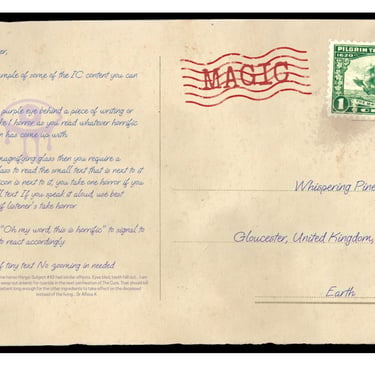 er,
mple of some of the IC content you can
purple eye behind a piece of writing or
ke 1 horror as you read whatever horrific
n has come up with
magnifying glass then you require a
lass to read the small text that is next to it
icon is next to it, you take one horror if you
all text. If you speak it aloud, use best
f listener's take horror
"Oh my word, this is horrific" to signal to
to react accordingly
f tiny text. No zooming in needed
MAGIC
PILGRIM TE
1620
1
Whispering Pine
Gloucester, United Kingdom,
Earth